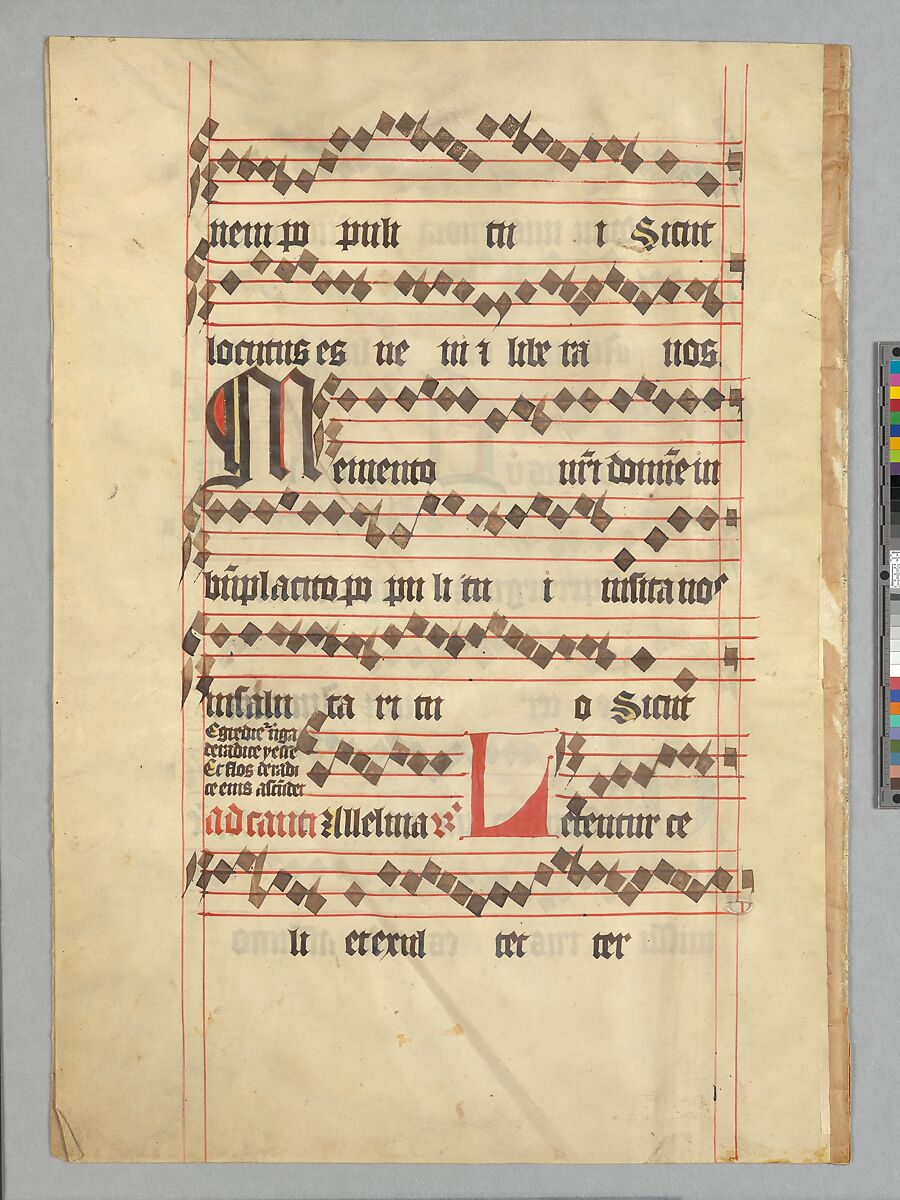 nem po puli tu i Sicut
locutus es ve ni ⁊ libe ra nos.
Memento nr̄i domīe in
bn̄placito po pu li tu i visita nos
in salu ta ri tu o Sicut
Egredie᷑ v̄iga
de radice yesse
Et flos de radi
ce eius ascēdet
ad cantī Alleluia v̄
Letentur ce
li et exul tet ter